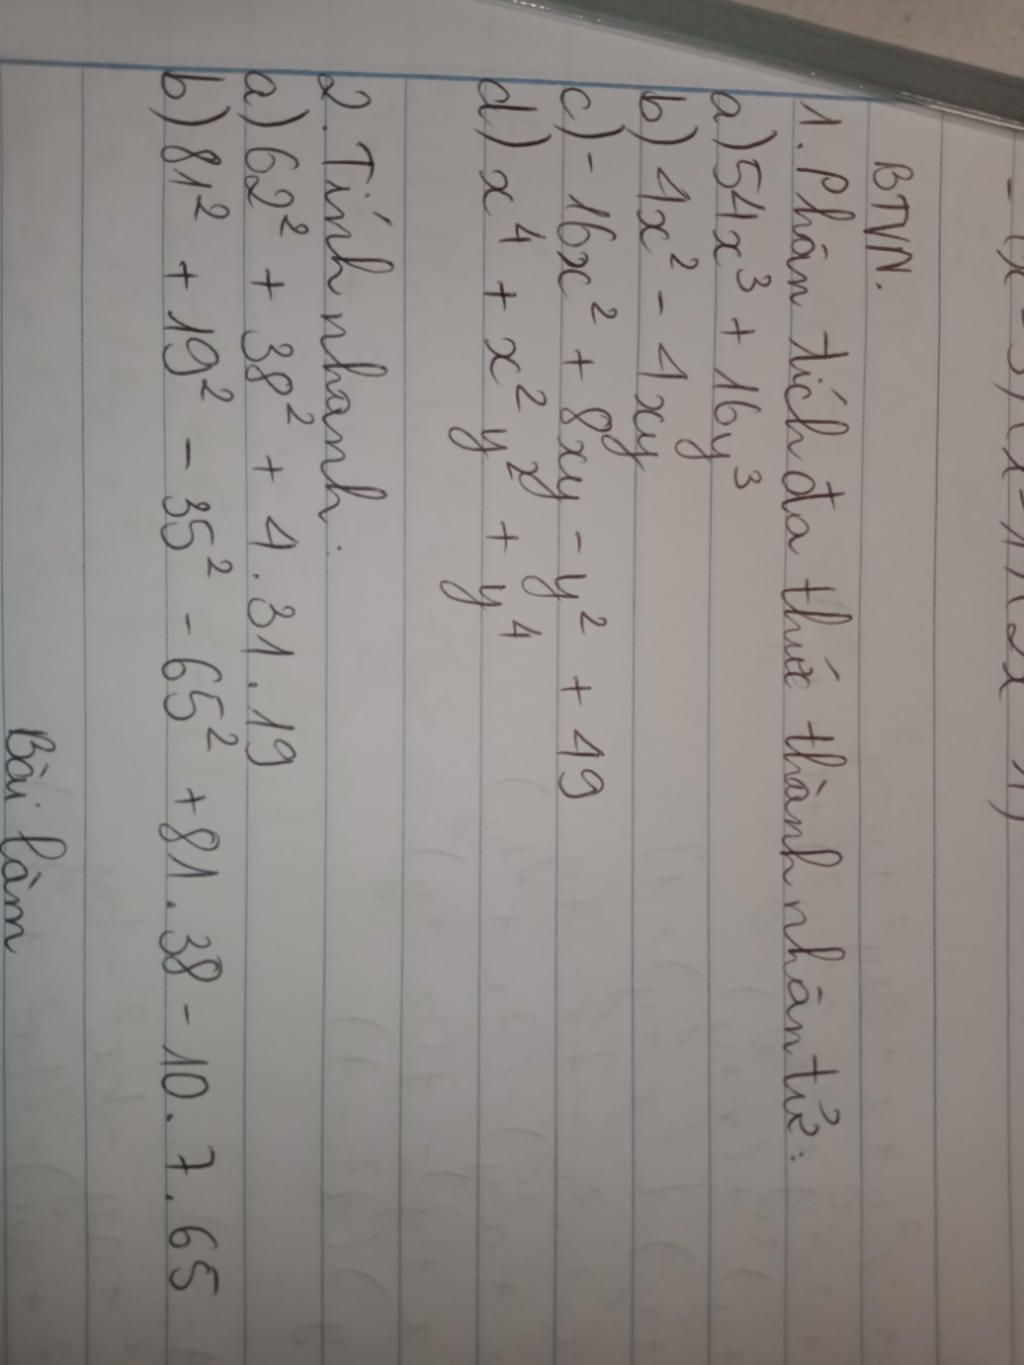 BTVN.
1. Phân tích đa thức thành nhân tử:
a) 54x³ + 16y³
b) 4x² - 4xy
c) - 16x² + 8xy - y² + 49
d) x⁴ + x²y² + y⁴
2. Tính nhanh:
a) 62² + 38² + 4.31.19
b) 81² + 19² - 35² - 65² + 81.38 - 10.7.65
Bài làm